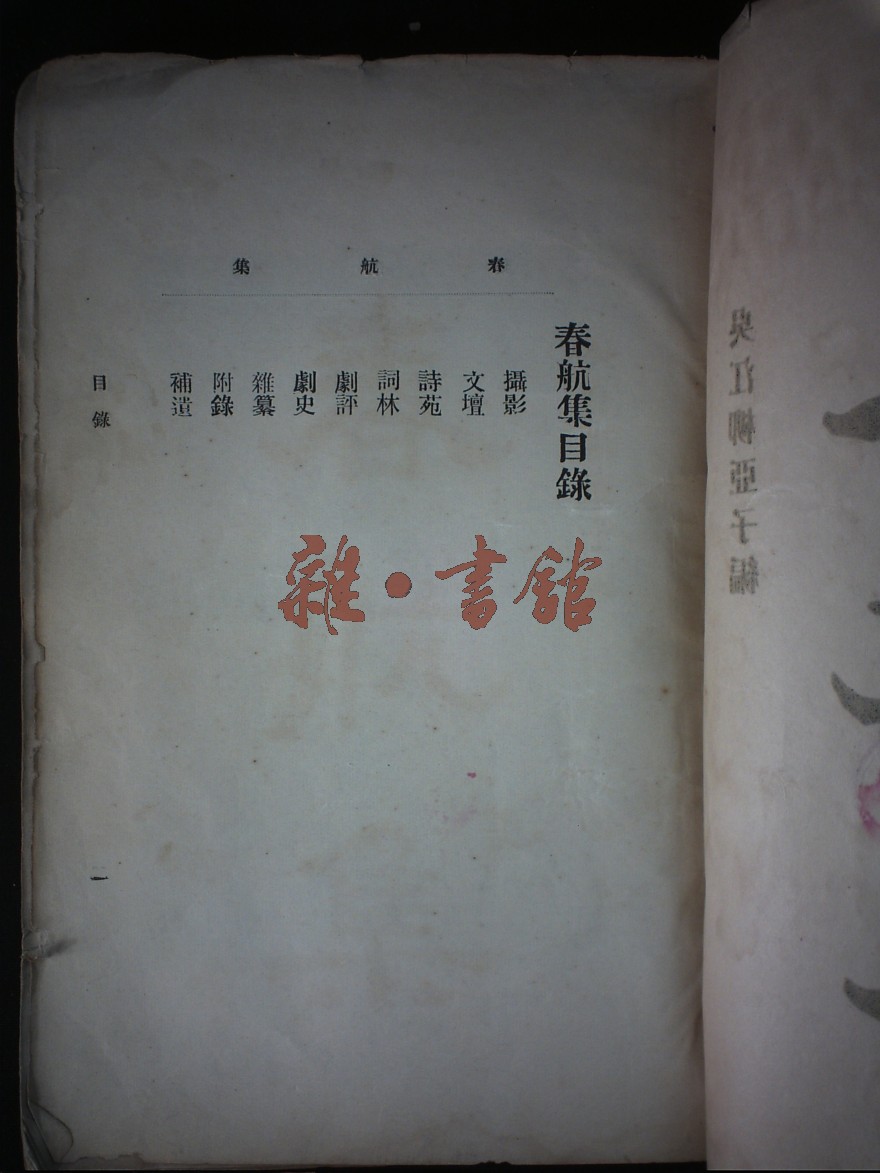 吳江柳亞子編
春航集
春航集目錄
攝影
文壇
詩苑
詞林
劇評
劇史
雜纂
附錄
補遺
目錄
一
雜·書館